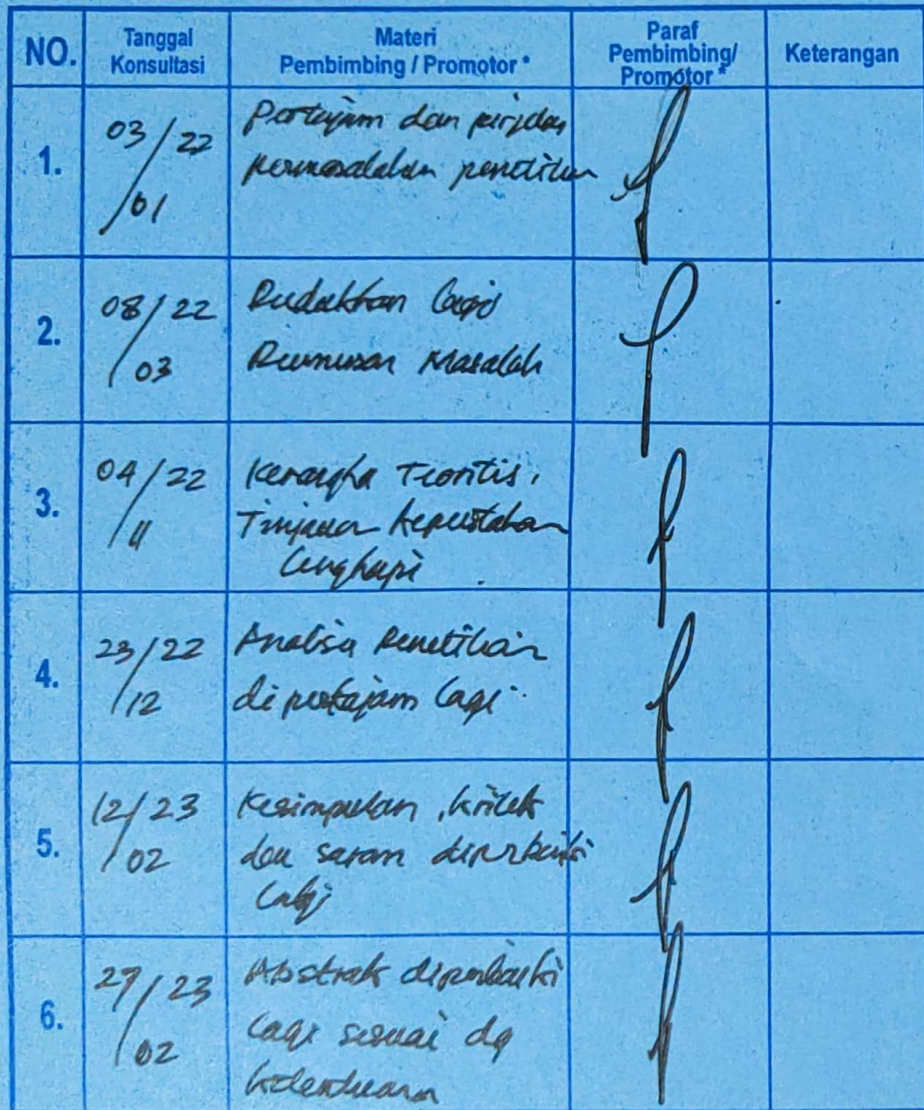 NO.
Tanggal
Konsultasi
Materi
Pembimbing / Promotor *
Paraf
Pembimbing/
Promotor *
Keterangan
1.
03/22
/01
Pertajam dan perjelas
permasalahan penelitian
2.
08/22
/03
lagi
Rumusan Masalah
3.
04/22
/11
Kerangka Teoritis,
Tinjauan kepustakaan
lengkapi
4.
23/22
/12
Analisa Penelitian
dipertajam lagi
5.
12/23
/02
Kesimpulan, kritik
dan saran diperbaiki
lagi
6.
27/23
/02
Abstrak diperbaiki
lagi sesuai dg
ketentuan